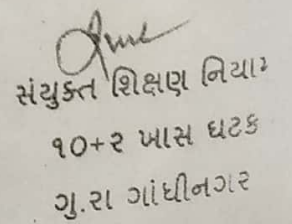 સંયુક્ત શિક્ષણ નિયામ
૧૦+૨ ખાસ ઘટક
ગુ.રા ગાંધીનગર